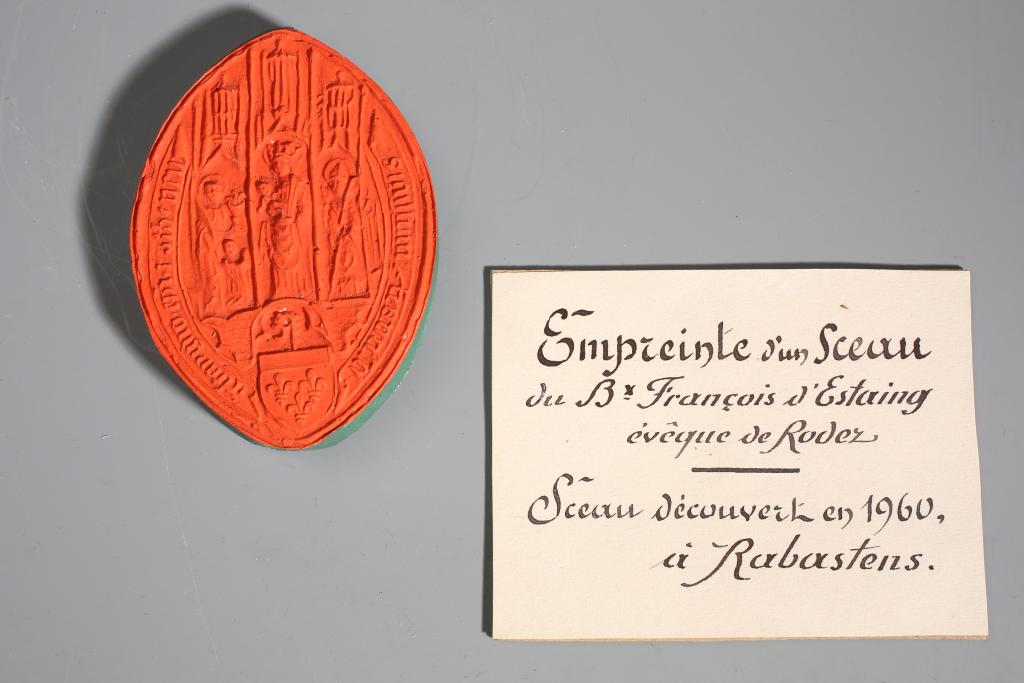 Empreinte d'un Sceau
du Bx François d'Estaing
évêque de Rodez
Sceau découvert en 1960,
à Rabastens.